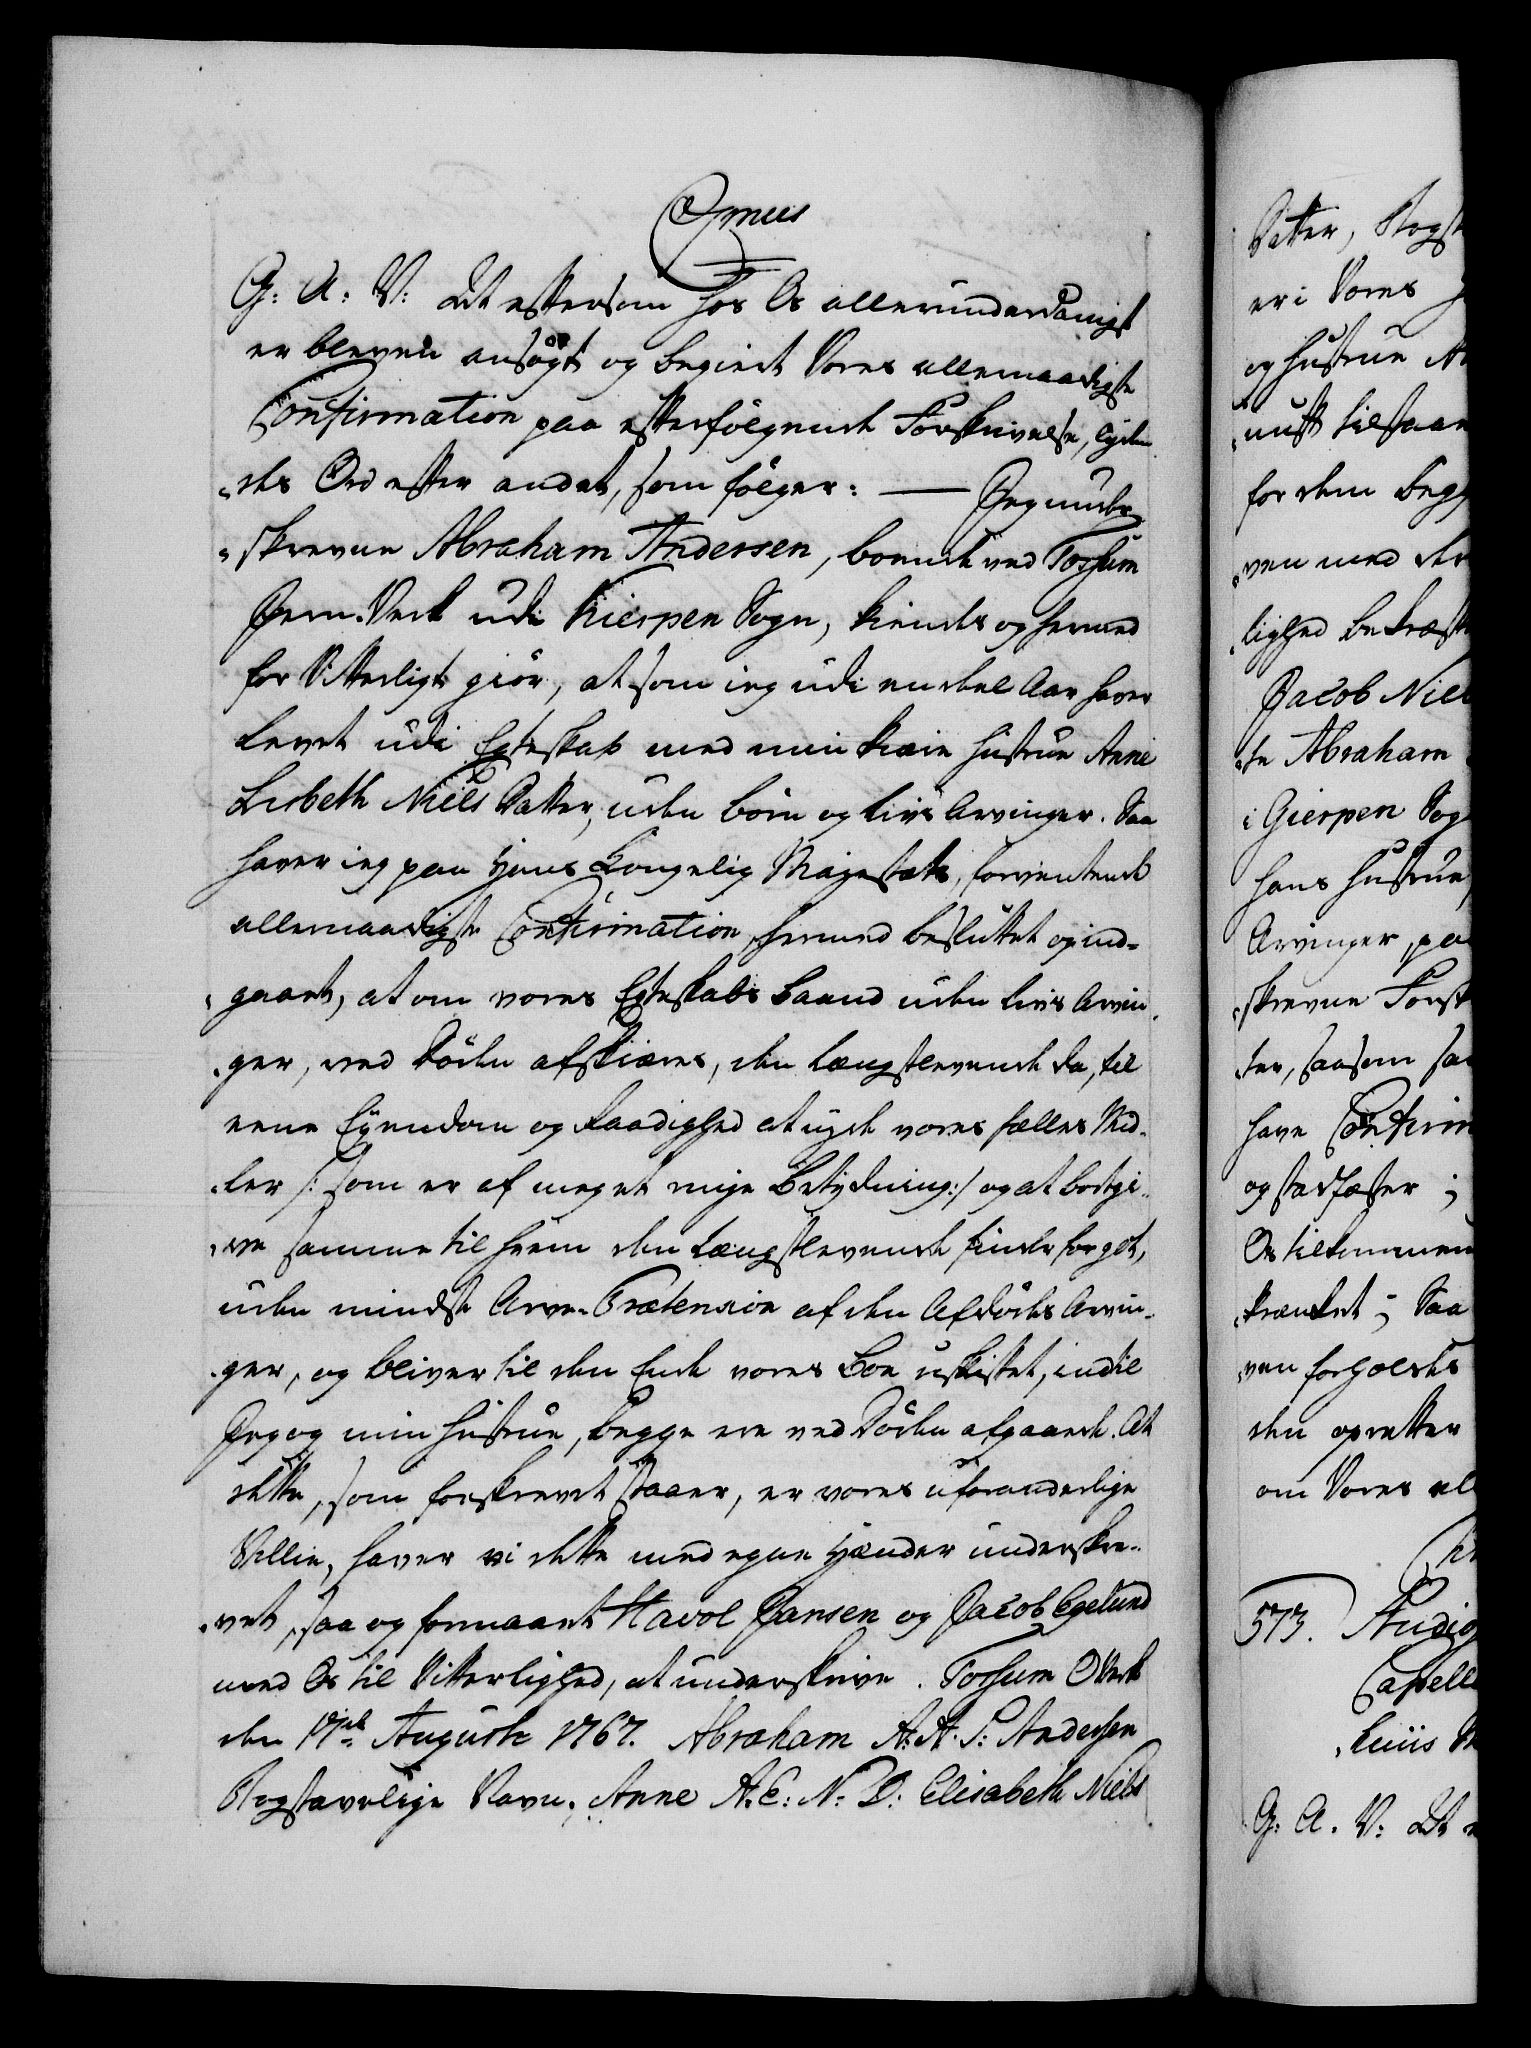 Omnes
G: A: V: At eftersom hos Os allerunderdanigst
er bleven ansøgt og begiert Vores allernaadigste
Confirmation paa efterfølgende Forskrivelse, lyden
des Ord efter andet, som følger: — Jeg under
skrevne Abraham Andersen, boende ved Fossum
Jern-Verk udi Gierpen Sogn, kiendes og hermed
for Vitterligt giør, at som ieg udi en deel Aar haver
levet udi Egteskab med min kiære Hustrue Anne
Lisbeth Niels Datter, uden børn og livs Arvinger. Saa
haver ieg paa Hans Kongelig Majestæts, forventende
allernaadigste Confirmation, hermed besluttet og ind-
gaaet, at om vores Egteskabs baand uden livs Arvin
ger, ved Døden afskiæres, den længstlevende da, til
eene Eyendom og Raadighed at nyde vores fælles Mid-
ler /: som er af meget ringe betydning :/ og at bortgi-
ve samme til hvem den længstlevende finder for got,
uden mindste Arve-Prætension af den Afdødes Arvin-
ger, og bliver til den Ende vores Boe uskiftet, indtil
Jeg og min Hustrue, begge ere ved Døden afgaaede. At
dette, som forskrevet staaer, er vores uforanderlige
Villie, haver vi dette med egne Hænder underskre-
vet, saa og formaaet Havol Jansen og Jacob Egelund
med Os til Vitterlighed, at underskrive. Fossum Verk
den 17de Auguste 1767. Abraham A: A: S: Andersen
Bogstavelige Navn. Anne A: E: N: D: Elisabeth Niels
Datter, Bogst
er i Vores
og Hustrue
nust tilstaae
for dem begg
ven med de
lighed bekræft
Jacob Niel
te Abraham
i Gierpen Sog
hans Hustrue
Arvinger, pa
skrevne Forsk
der, saasom sa
have Confirm
og stadfæster;
Os tilkommen
krænket; Saa
ven forholdes
den opretter
om Vores al
573. Studio
Capell
G: A: V: At